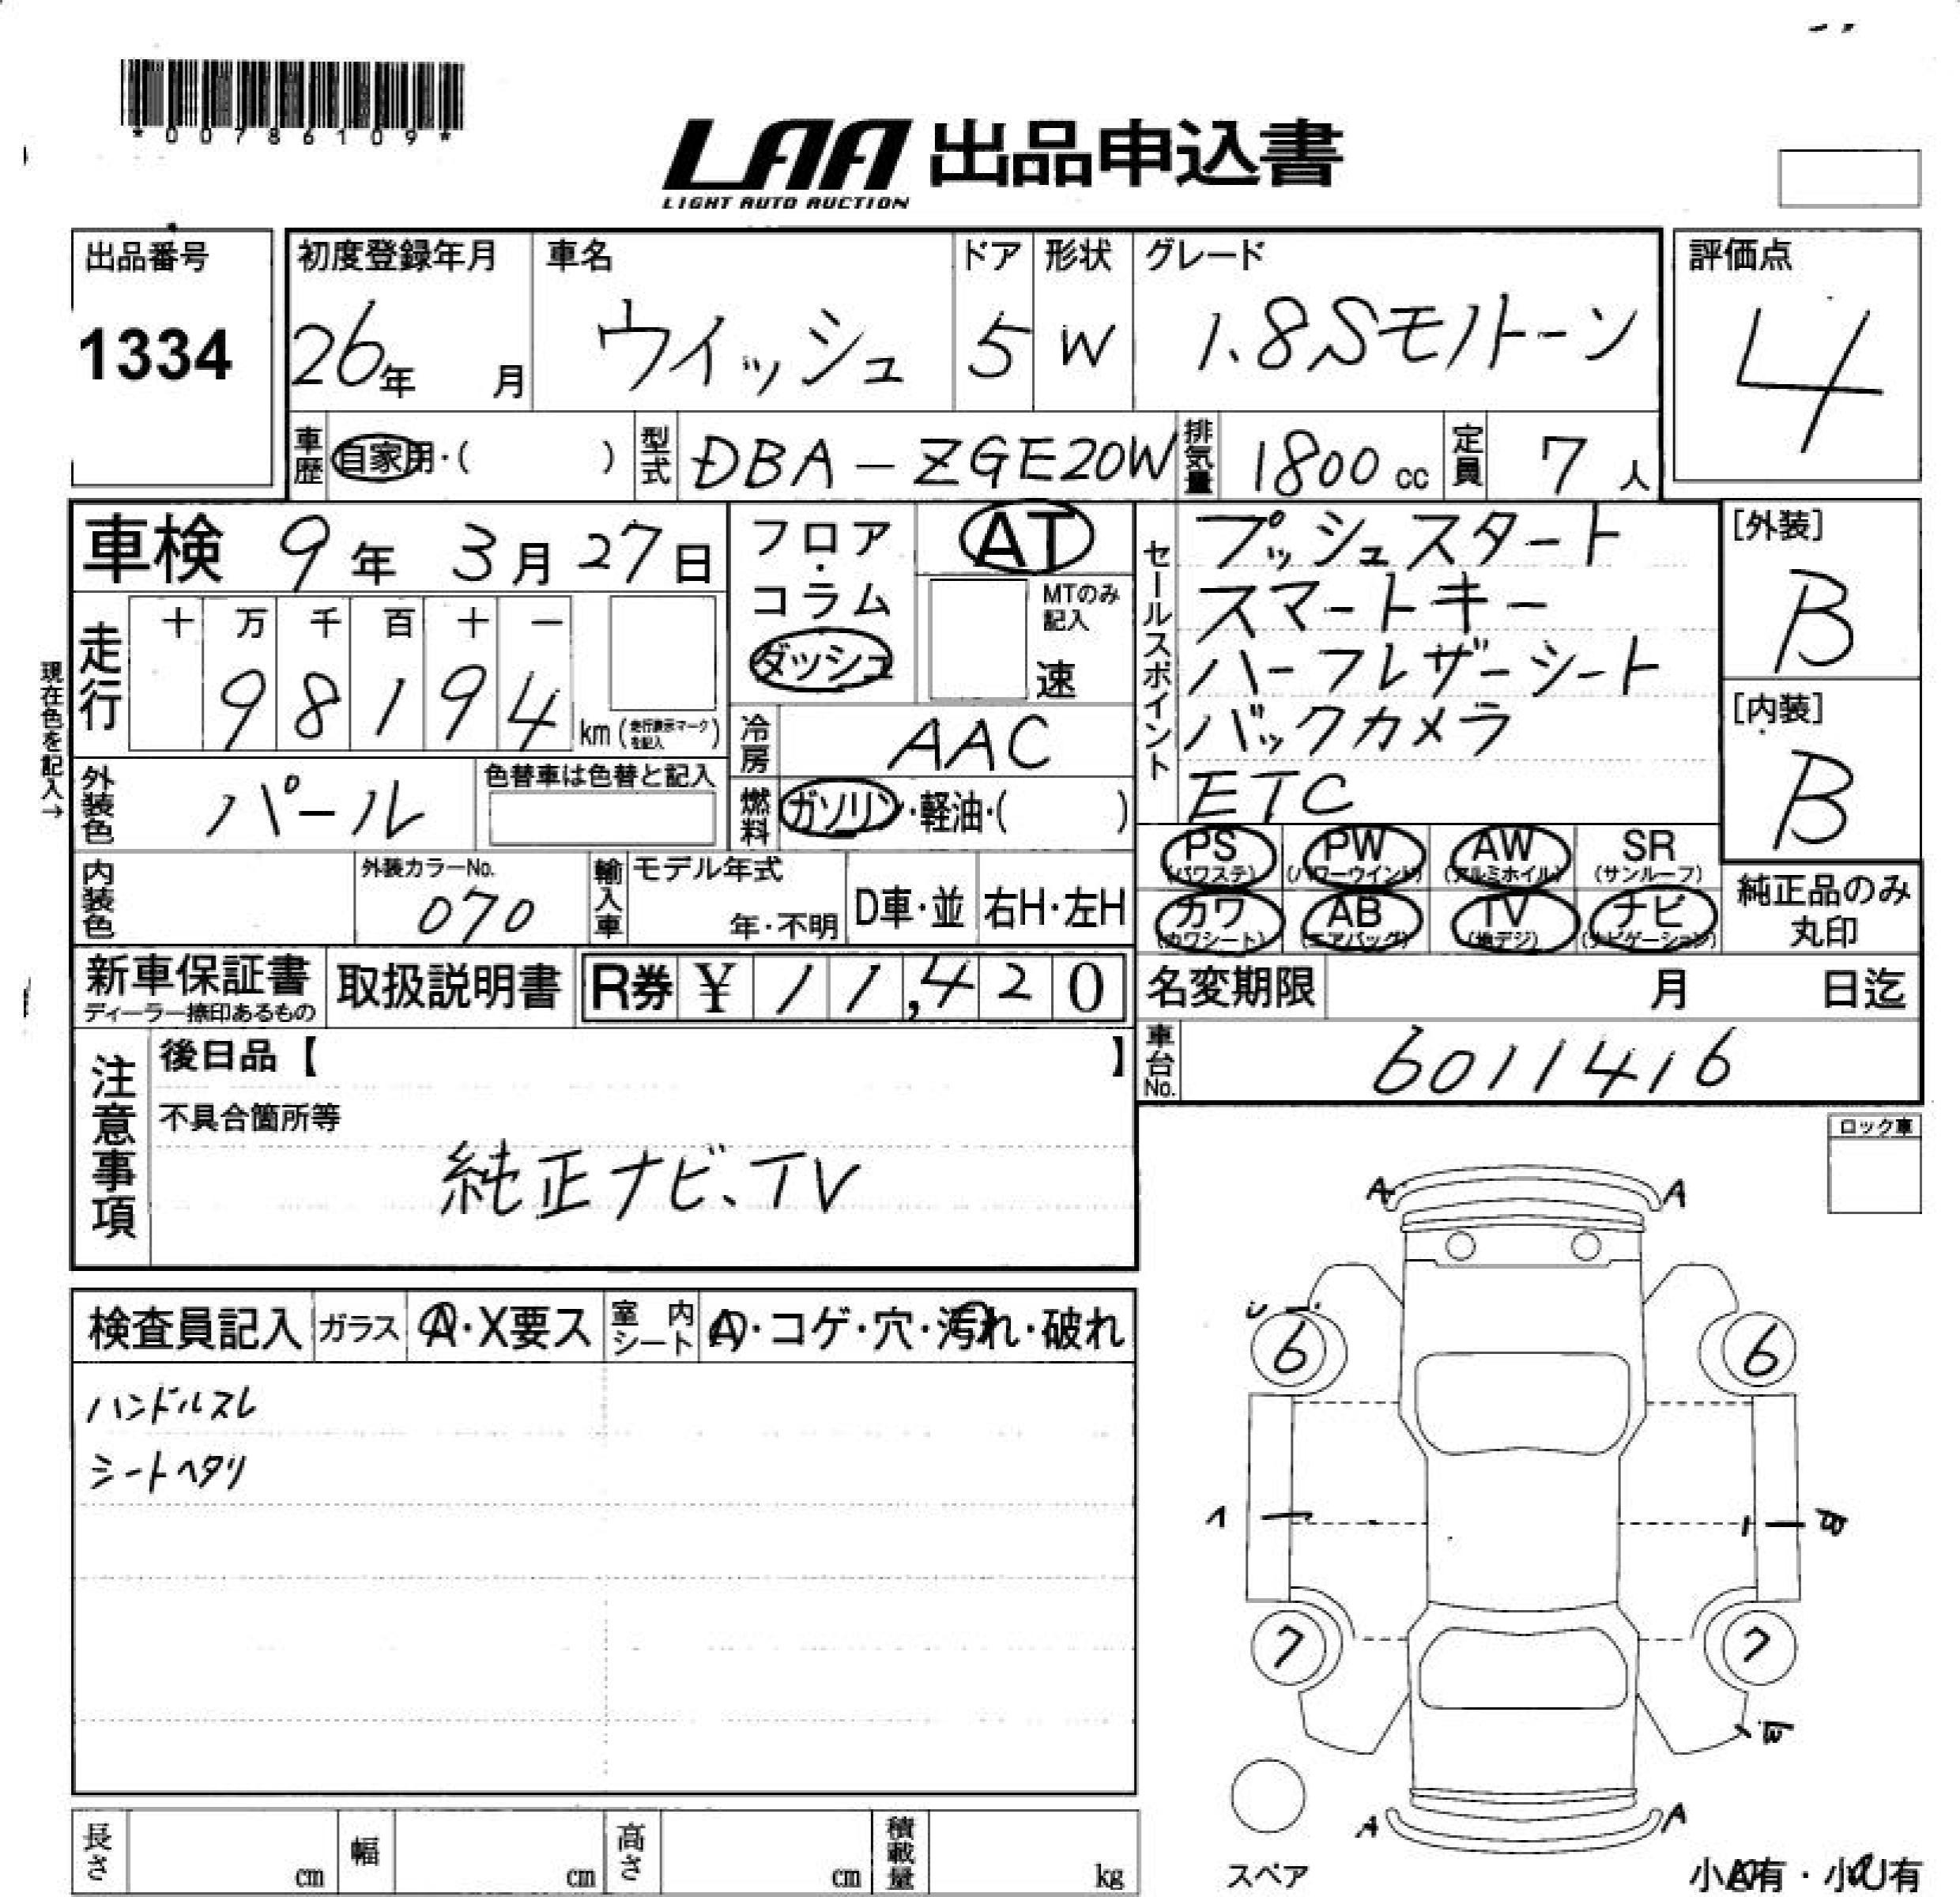 *00786109*
LAA 出品申込書
LIGHT AUTO AUCTION
出品番号
1334
初度登録年月
26年 月
車名
ウイッシュ
ドア
5
形状
W
グレード
1.8Sモノトーン
評価点
4
車歴 自家用・( )
型式 DBA-ZGE20W
排気量 1800 cc
定員 7 人
車検 9年 3月 27日
現在色を記入→
走行
十 万 千 百 十 一
9 8 1 9 4 km (走行表示マークを記入)
フロア・コラム
ダッシュ
AT
MTのみ記入
速
セールスポイント
プッシュスタート
スマートキー
ハーフレザーシート
バックカメラ
ETC
[外装]
B
[内装]
B
外装色 パール
色替車は色替と記入
冷房 AAC
燃料 ガソリン・軽油・( )
内装色
外装カラーNo.
070
輸入車
モデル年式
年・不明
D車・並
右H・左H
PS
(パワステ)
PW
(パワーウインド)
AW
(アルミホイル)
SR
(サンルーフ)
カワ
(カワシート)
AB
(エアバッグ)
TV
(地デジ)
ナビ
(ナビゲーション)
純正品のみ
丸印
新車保証書
ディーラー捺印あるもの
取扱説明書
R券 ¥ 11,420
名変期限 月 日迄
車台No. 6011416
注意事項
後日品【 】
不具合箇所等
純正ナビ、TV
ロック車
検査員記入
ガラス
A・X要ス
室内シート
A・コゲ・穴・汚れ・破れ
ハンドルスレ
シートヘタリ
A A
6 6
7 7
A A
スペア
小A有・小U有
長さ cm
幅 cm
高さ cm
積載量 kg